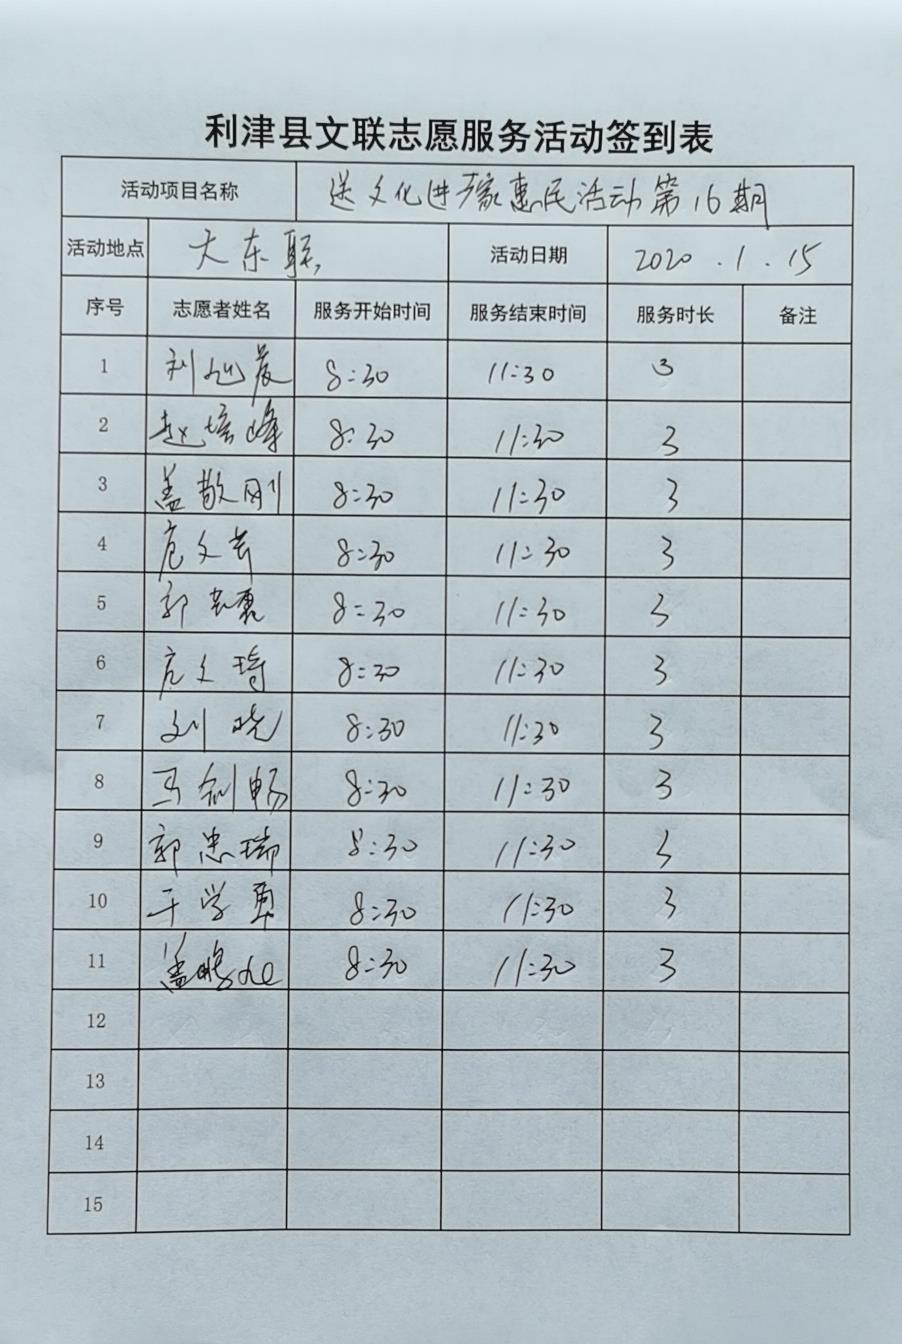 利津县文联志愿服务活动签到表
活动项目名称 送文化进万家惠民活动第16期
活动地点 大东联 活动日期 2020.1.15
序号 志愿者姓名 服务开始时间 服务结束时间 服务时长 备注
1 刘旭晨 8:30 11:30 3
2 赵培峰 8:30 11:30 3
3 盖敬刚 8:30 11:30 3
4 扈文芳 8:30 11:30 3
5 郭 8:30 11:30 3
6 扈文琦 8:30 11:30 3
7 刘晓 8:30 11:30 3
8 马剑畅 8:30 11:30 3
9 郭忠瑞 8:30 11:30 3
10 于学勇 8:30 11:30 3
11 盖鹏 8:30 11:30 3
12
13
14
15